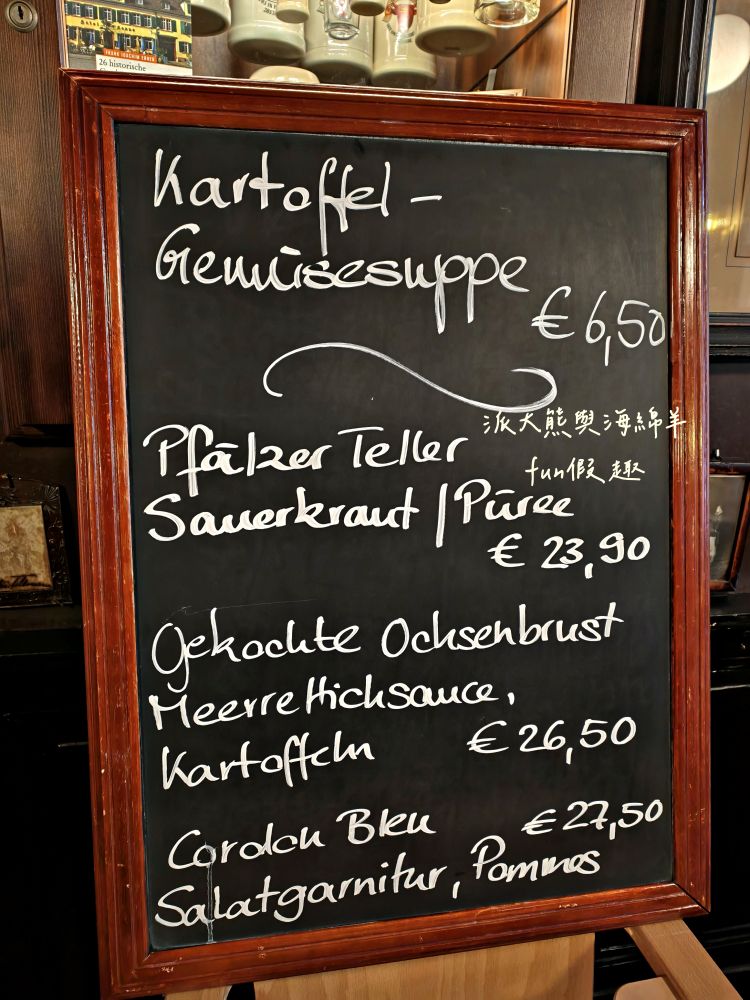 26 historische
Kartoffel-
Gemüsesuppe
€ 6,50
派大熊與海綿羊
fun假趣
Pfälzer Teller
Sauerkraut / Püree
€ 23,90
Gekochte Ochsenbrust
Meerrettichsauce,
Kartoffeln € 26,50
Cordon Bleu € 27,50
Salatgarnitur, Pommes